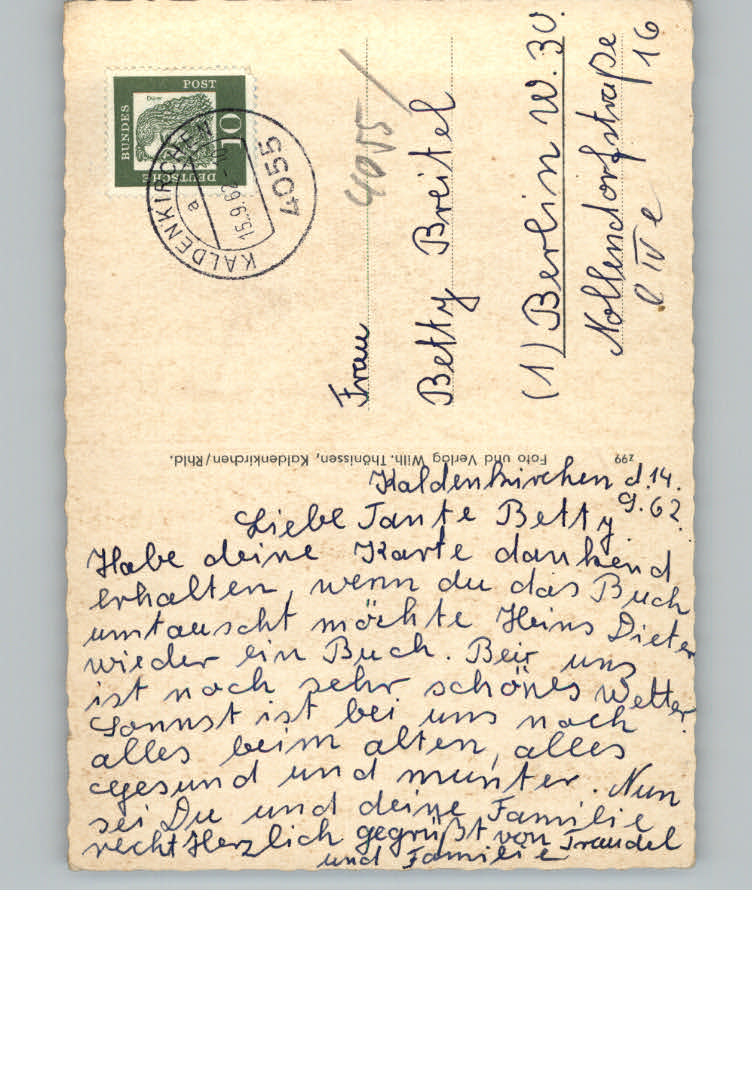 Kaldenkirchen d. 14.
9.62.
Liebe Tante Betty
Habe deine Karte dankend
erhalten, wenn du das Buch
umtauscht möchte Heins Dieter
wieder ein Buch. Beir uns
ist noch sehr schönes Wetter.
Sonnst ist bei uns noch
alles beim alten, alles
gesund und munter. Nun
sei Du und deine Familie
recht Herzlich gegrüßt von Traudel
und Familie
Frau
Betty Breitel
(1) Berlin W. 30.
Nollendorfstraße 16
IV e
4055
Foto und Verlag Wilh. Thönissen, Kaldenkirchen/Rhld.
z99
DEUTSCHE
BUNDES
POST
Dürer
10
KALDENKIRCHEN
a
15.9.62
4055